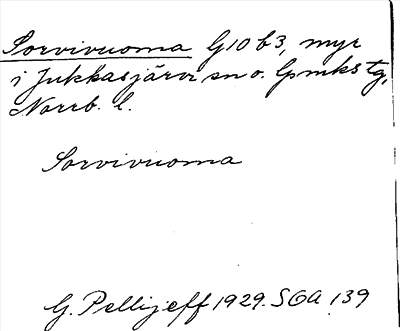 Sorvivuoma G10 b3, myr
i Jukkasjärvi sn o. Gpmks tg,
Norrb. l.
Sorvivuoma
G. Pellijeff 1929. SOA 139